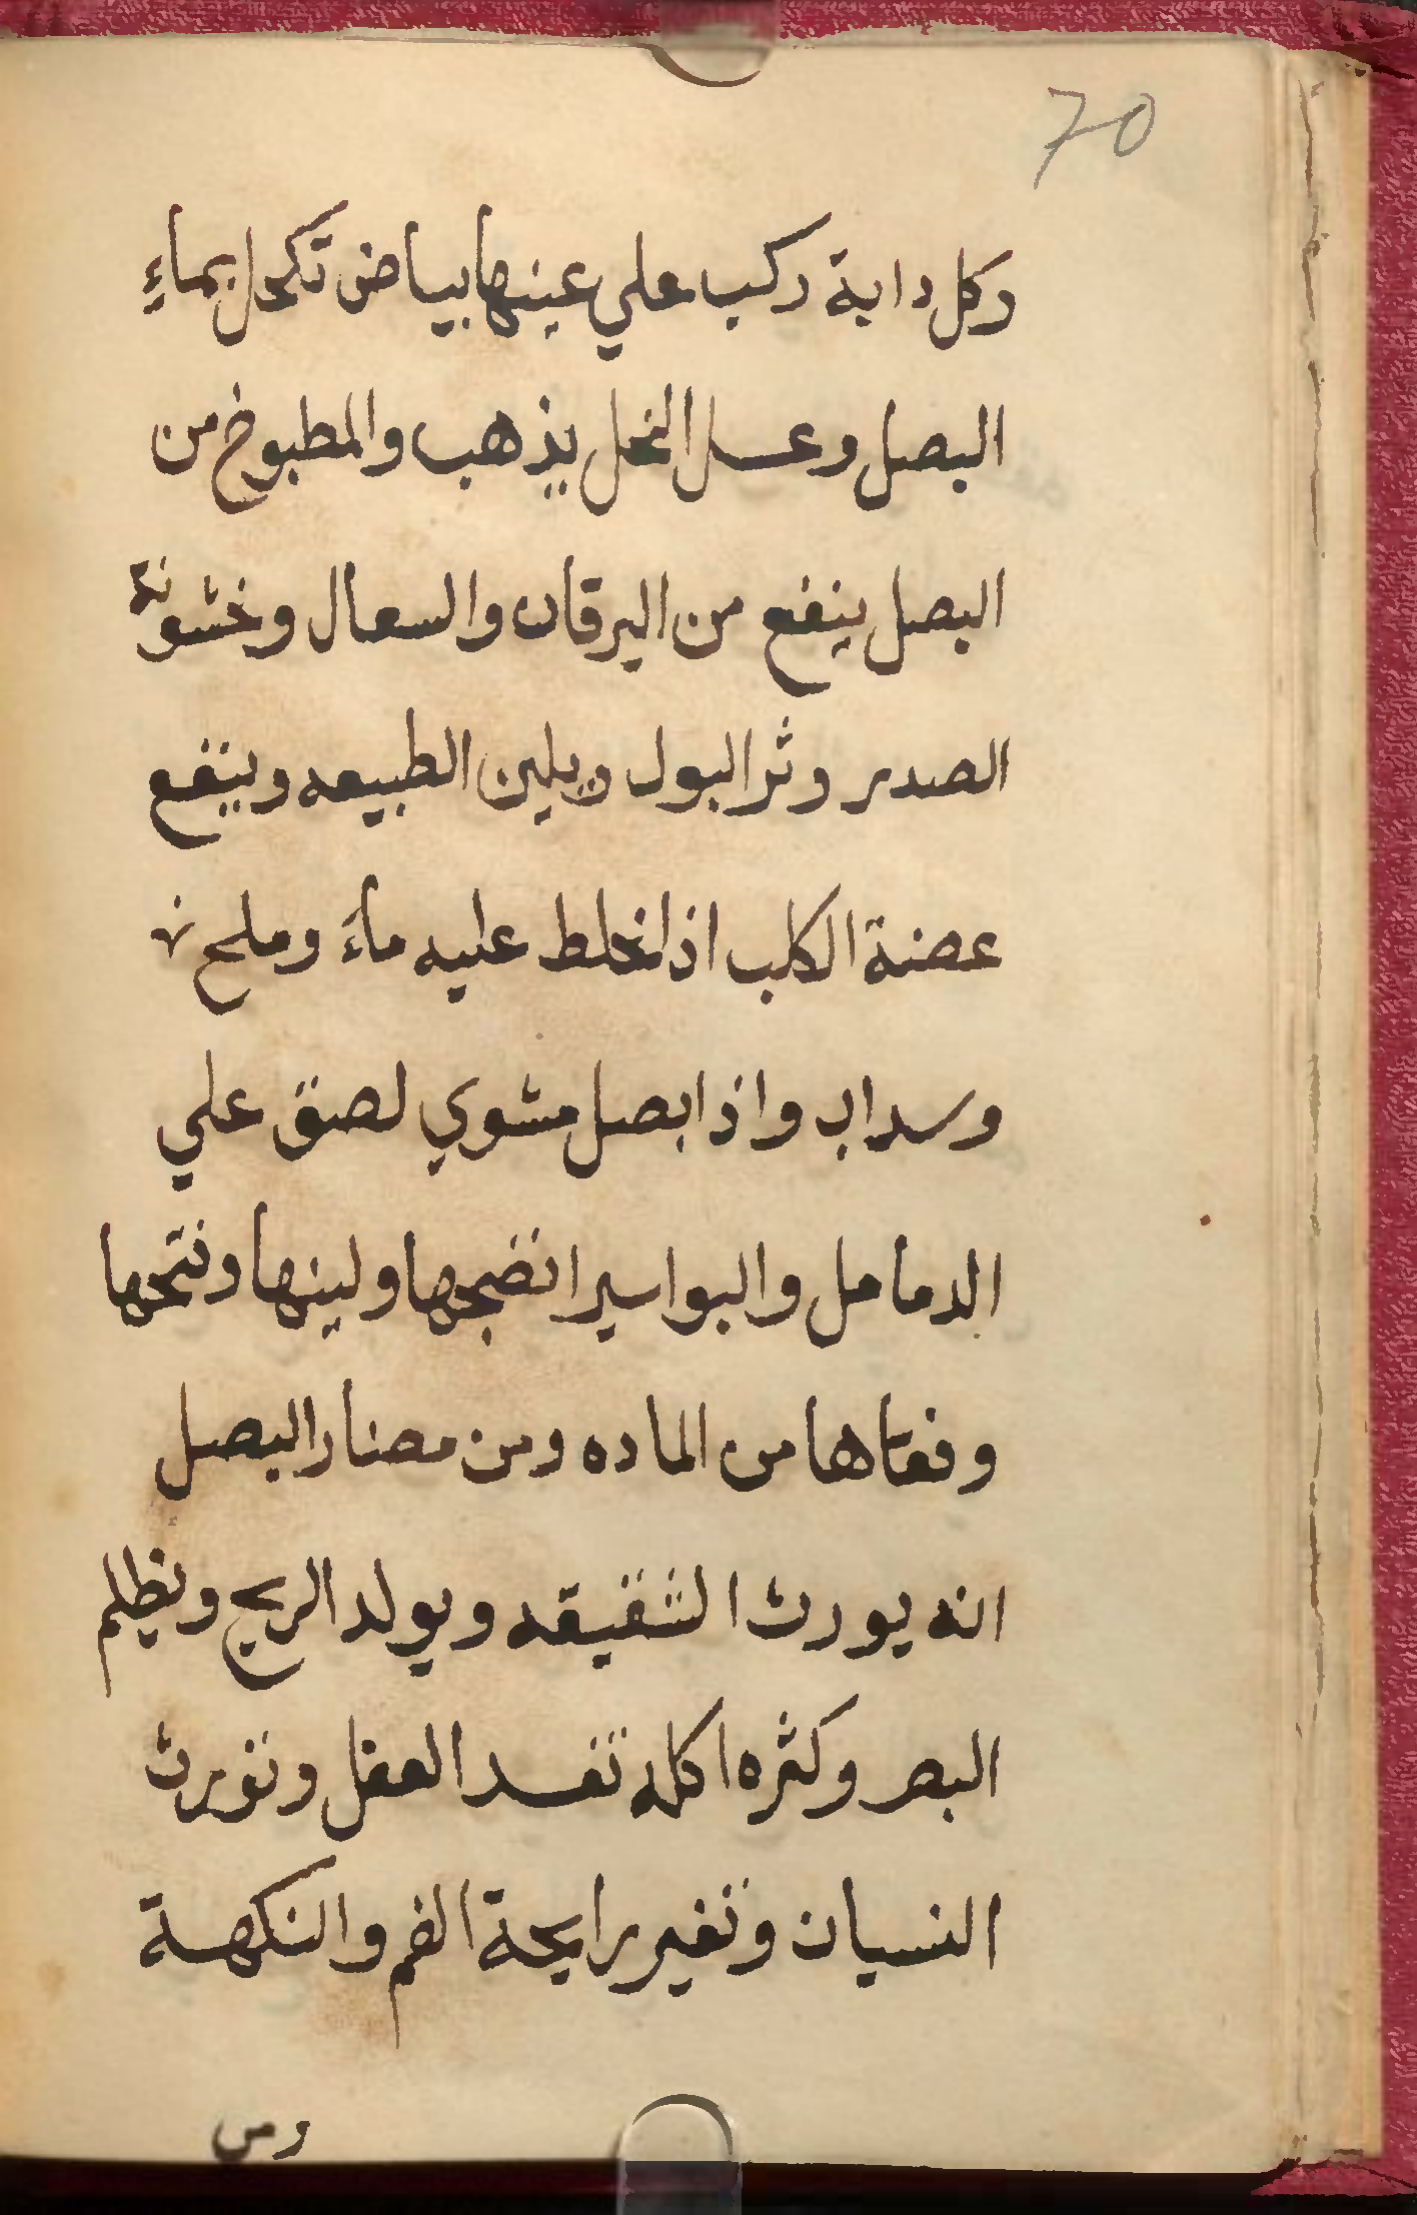 70
وكل دابة ركب علي عينها بياض تكحل بماءِ
البصل وعسل النحل يذهب والمطبوخ من
البصل ينفع من اليرقان والسعال وخشونة
الصدر وثر البول ويلين الطبيعه وينفع
عضة الكلب اذا خلط عليه ماء وملح
وسداب واذا بصل مشوي لصق علي
الدمامل والبواسير انضجها ولينها وفتحها
من الماده ومن مضار البصل
انه يورث الشقيقه ويولد الريح ويظلم
البصر وكثره اكله تفسد العقل وتورث
النسيان وتغير رايحة الفم والنكهة
ومن